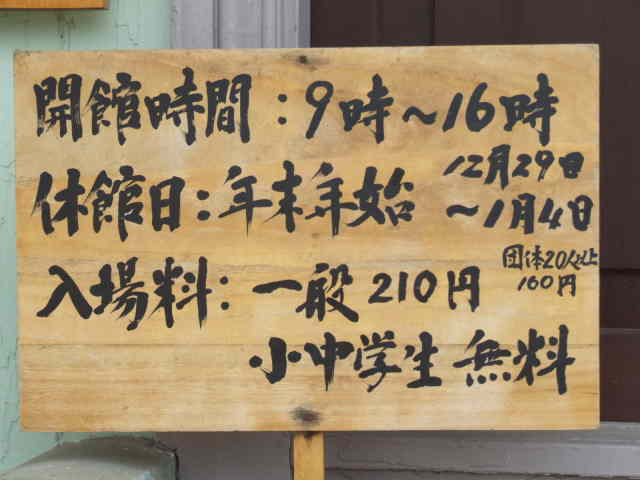 開館時間:9時~16時
休館日:年末年始 12月29日
~1月4日
入場料:一般210円 団体20人以上
160円
小中学生 無料